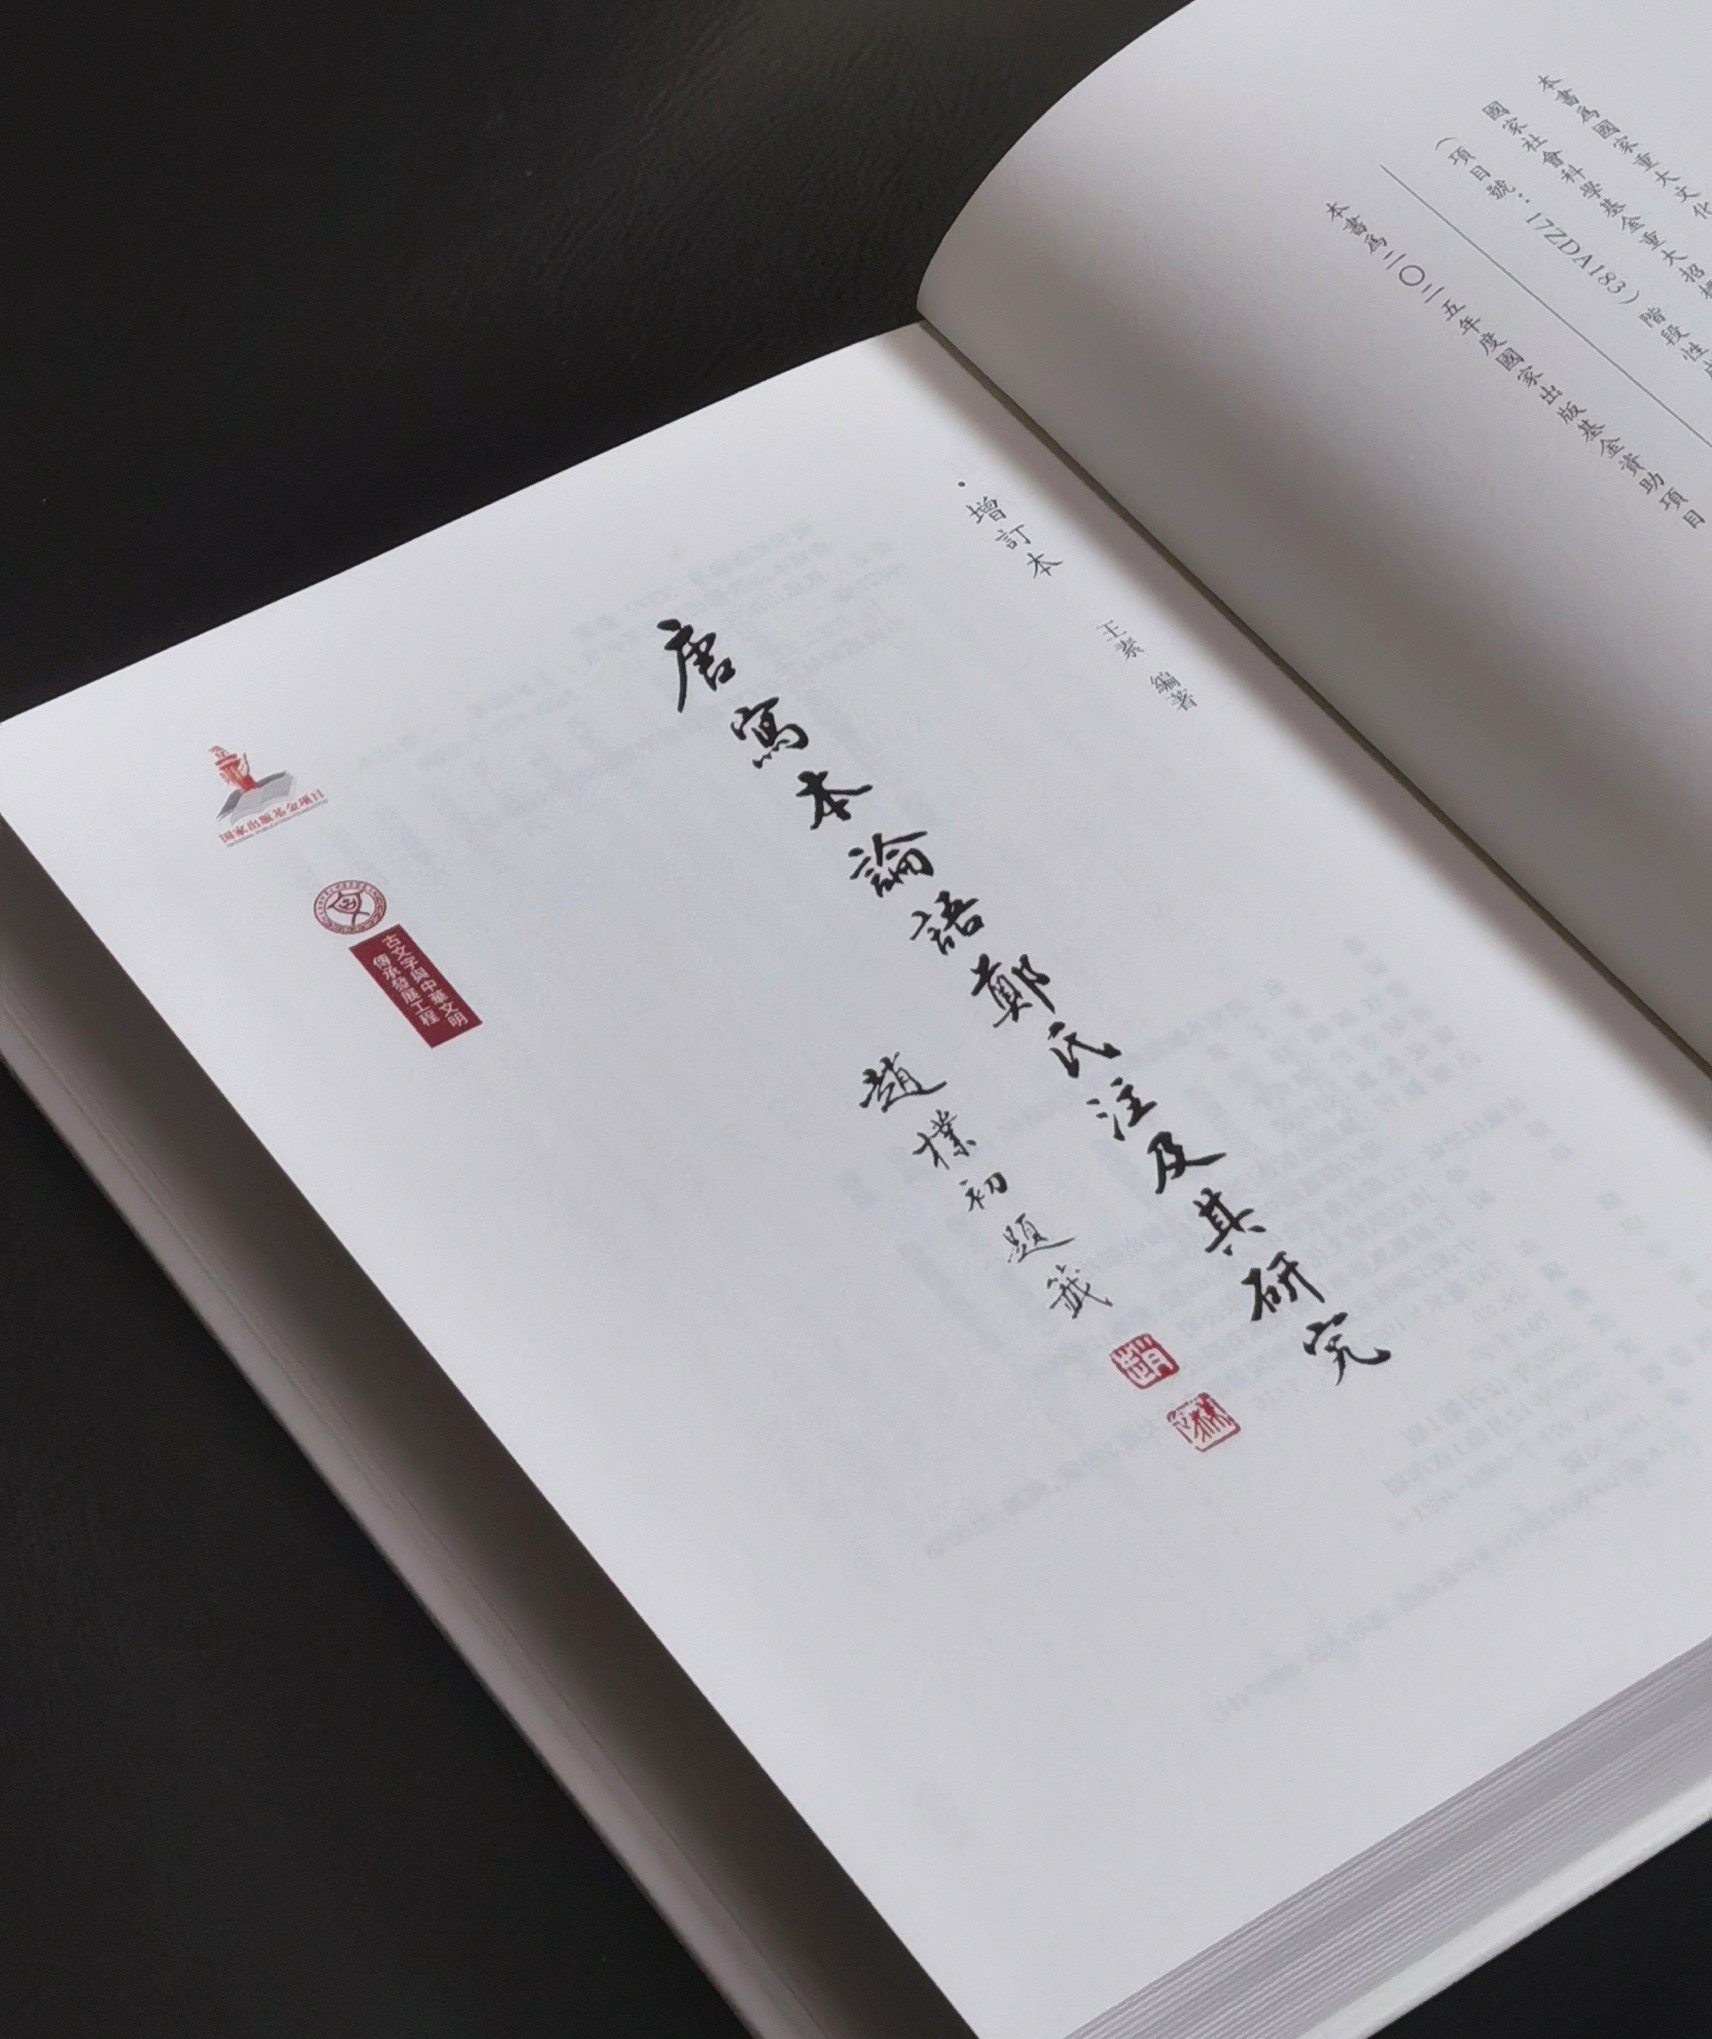 本書爲國家重大文化
國家社會科學基金重大招標
（項目號：17ZDA183）階段性成
本書爲二〇二五年度國家出版基金資助項目
·增訂本
王素 編著
唐寫本論語鄭氏注及其研究
趙樸初題籤
国家出版基金项目
NATIONAL PUBLICATION FOUNDATION
古文字與中華文明
傳承發展工程